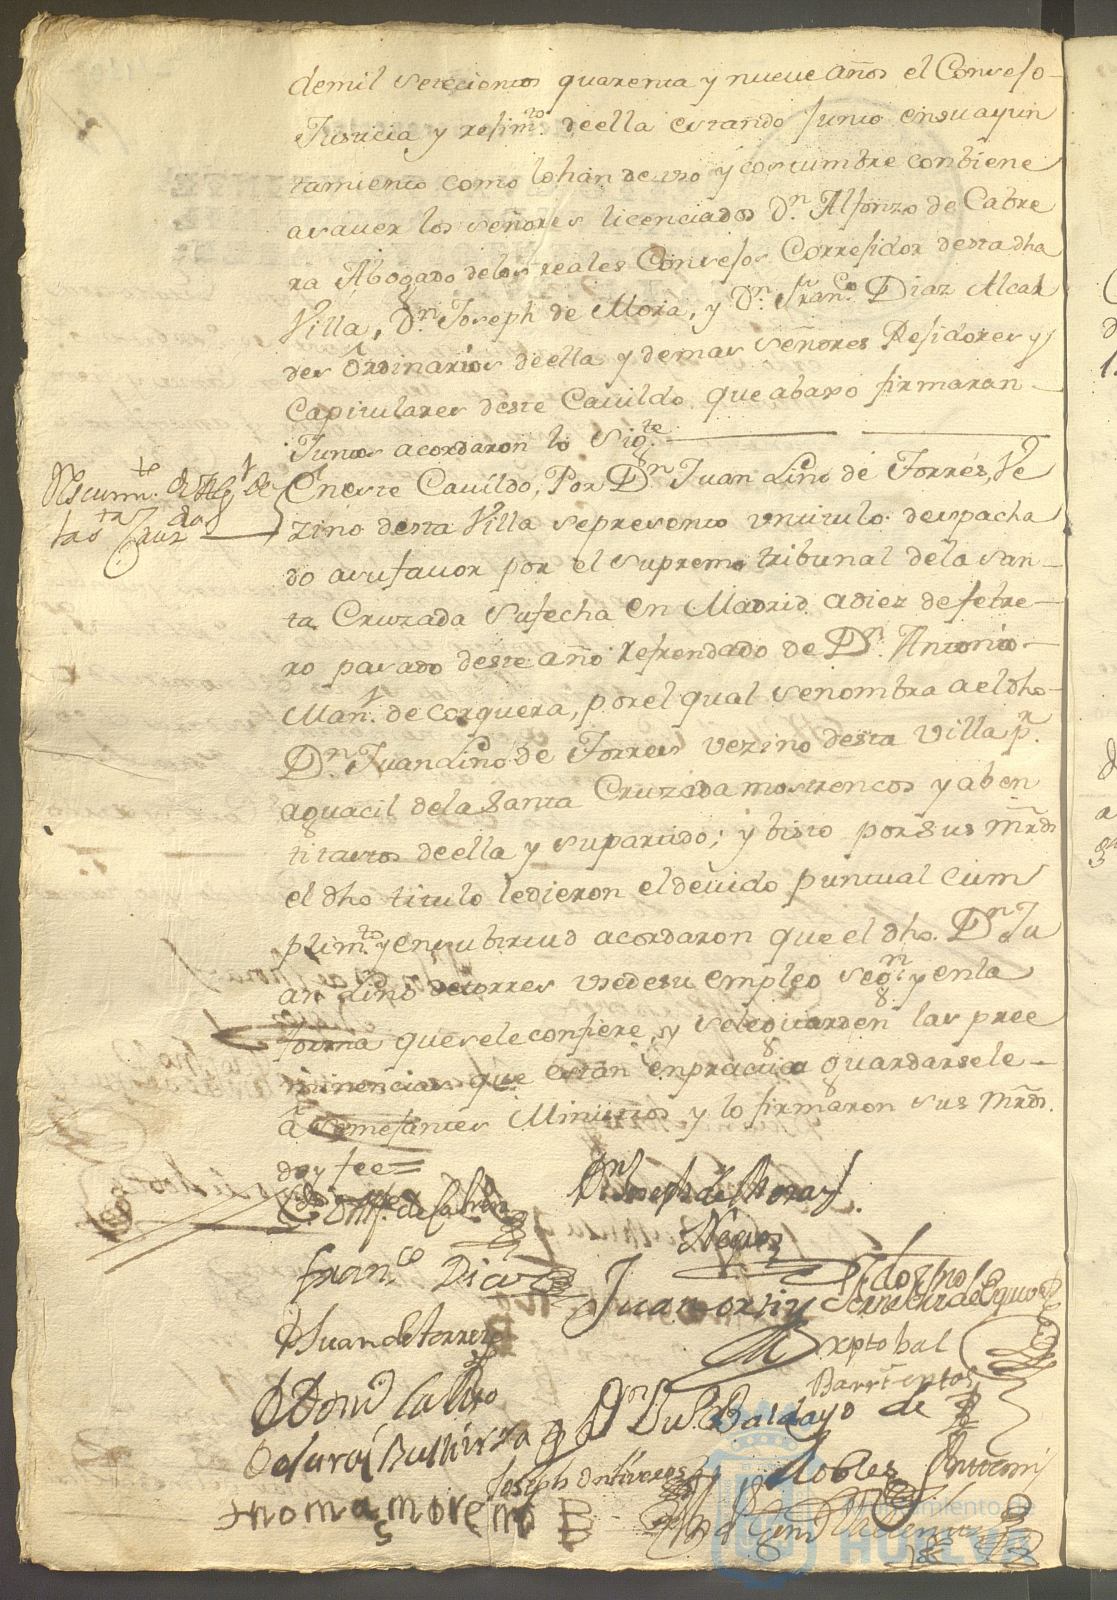 demil setecientos quarenta y nueve años el Consejo
Justicia y rejim.to deella estando junto ensu ayun
tamiento como lo han de uso y costumbre combiene
asauer los señores licenciados D.n Alfonzo de Cabre
ra Abogado delos reales Consejos Correjidor desta dha
Villa, D.n Joseph de Mora, y D.n Fran.co Diaz Alcal
des ôrdinarios deella y demas señores Rejidores y
Capitulares deste Cauildo que abaxo firmaran
Juntos acordaron lo sig.te
Eneste Cauildo, Por D.n Juan Lino de Torres, Ve
zino desta Villa sepresento untitulo despacha
do asufauor por el supremo tribunal dela san
ta Cruzada sufecha en Madrid adiez de febre
ro pasado deste año Refrendado de D.n Antonio
Man.l de Corquera, por el qual senombra aeldho
D.n Juan Lino de Torres vezino desta Villa p.r
aguacil dela Santa Cruzada mostrencos y aben
tis deella y supartido; y bisto por sus mrds
el dho titulo ledieron el deuido puntual cum
plim.to y ensubirtud acordaron que el dho. D.n Ju
an Lino detorres usedesu empleo seg.n y enla
forma quesele confiere, y seleguarden las pree
minencias que estan enpractica guardarsele
â semejantes Ministros y lo firmaron sus mrds.
doy fee=
D.n Joseph de Mora
Negro
Fran.co Diaz
Juan ortiz
D Juan de torres
xptobal
Barrientos
Baldayo de
Robles
Joseph
thomas moreno
Ayuntamiento de
HUELVA